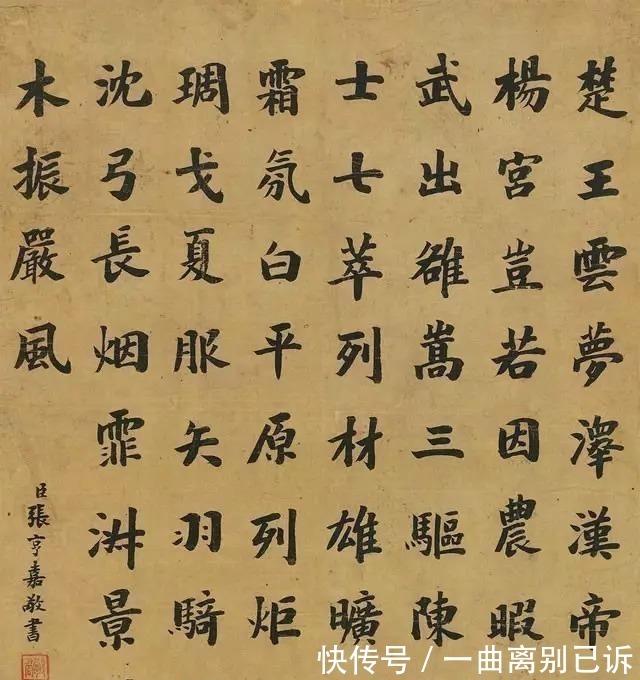 楚王雲夢澤漢帝
楊宮豈若因農暇
武出雒嵩三驅陳
士七萃列材雄曠
霜氛白平原列炬
琱戈夏服矢羽騎
沈弓長烟霏景
木振嚴風
臣張亨嘉敬書
快传号 / 一曲离别已诉